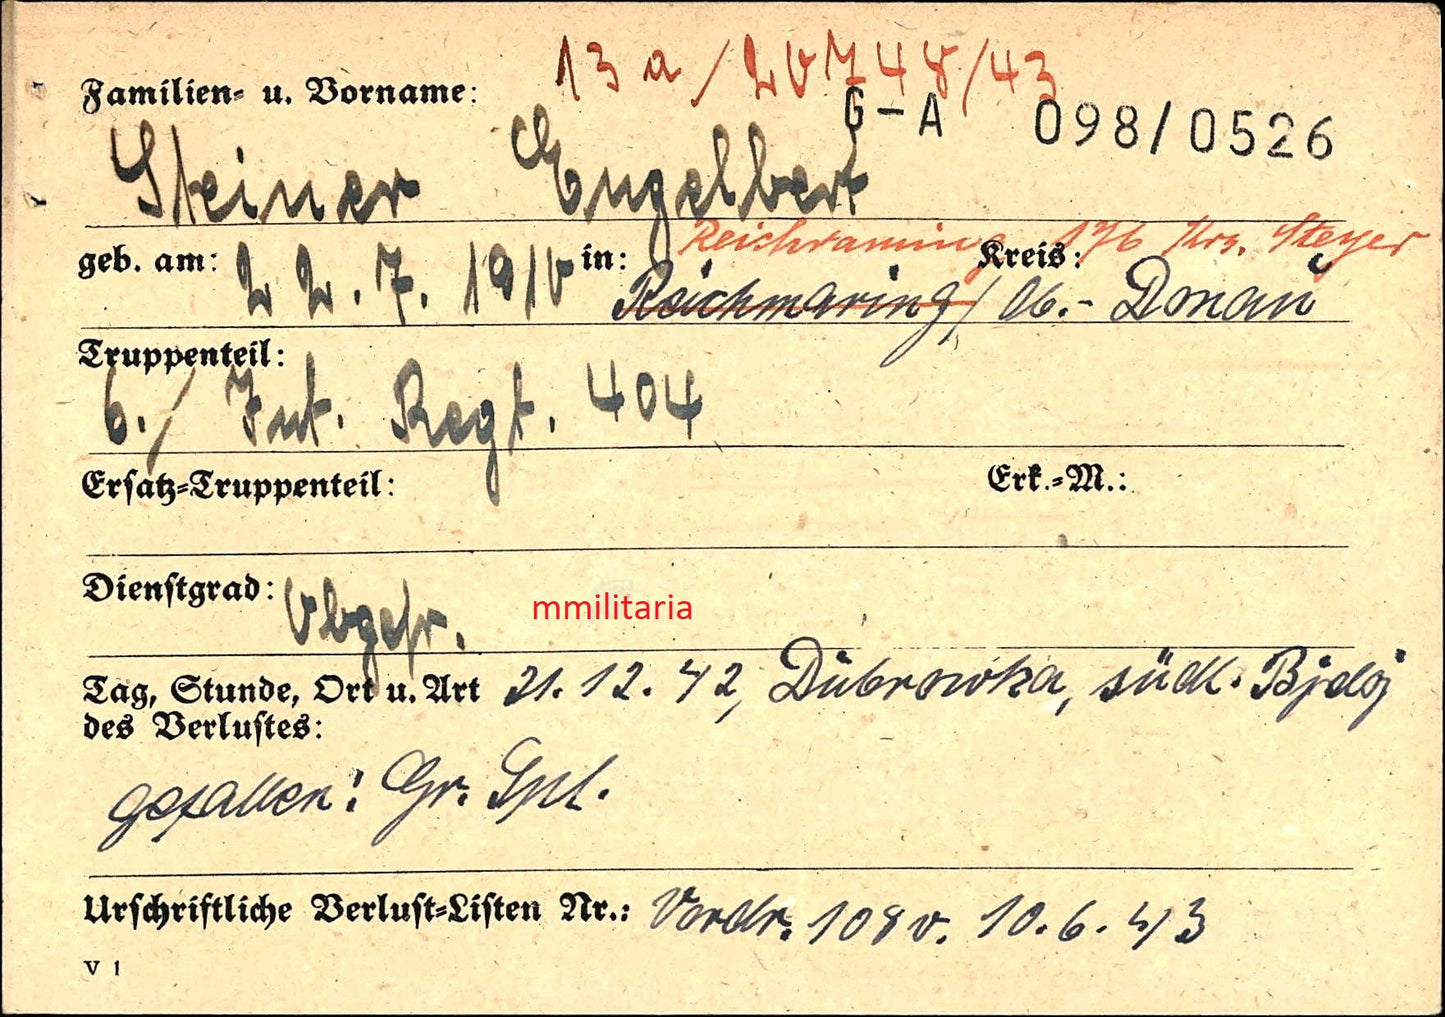 13 a / 20748/43
Familien- u. Vorname:
G-A 098/0526
Steiner Engelbert
Reichraming 176 Krs. Steyer
geb. am: 22.7.1910 in: Reichmaring / Ob.- Donau Kreis:
Truppenteil:
6./ Inf. Regt. 404
Ersatz-Truppenteil: Erk.-M.:
Dienstgrad: Obgefr.
mmilitaria
Tag, Stunde, Ort u. Art 21.12.42, Dubrowka, südl. Bjeloj
des Verlustes:
gefallen! Gr. Spl.
Urschriftliche Verlust-Listen Nr.: Vordr. 108 v. 10.6.43
V 1